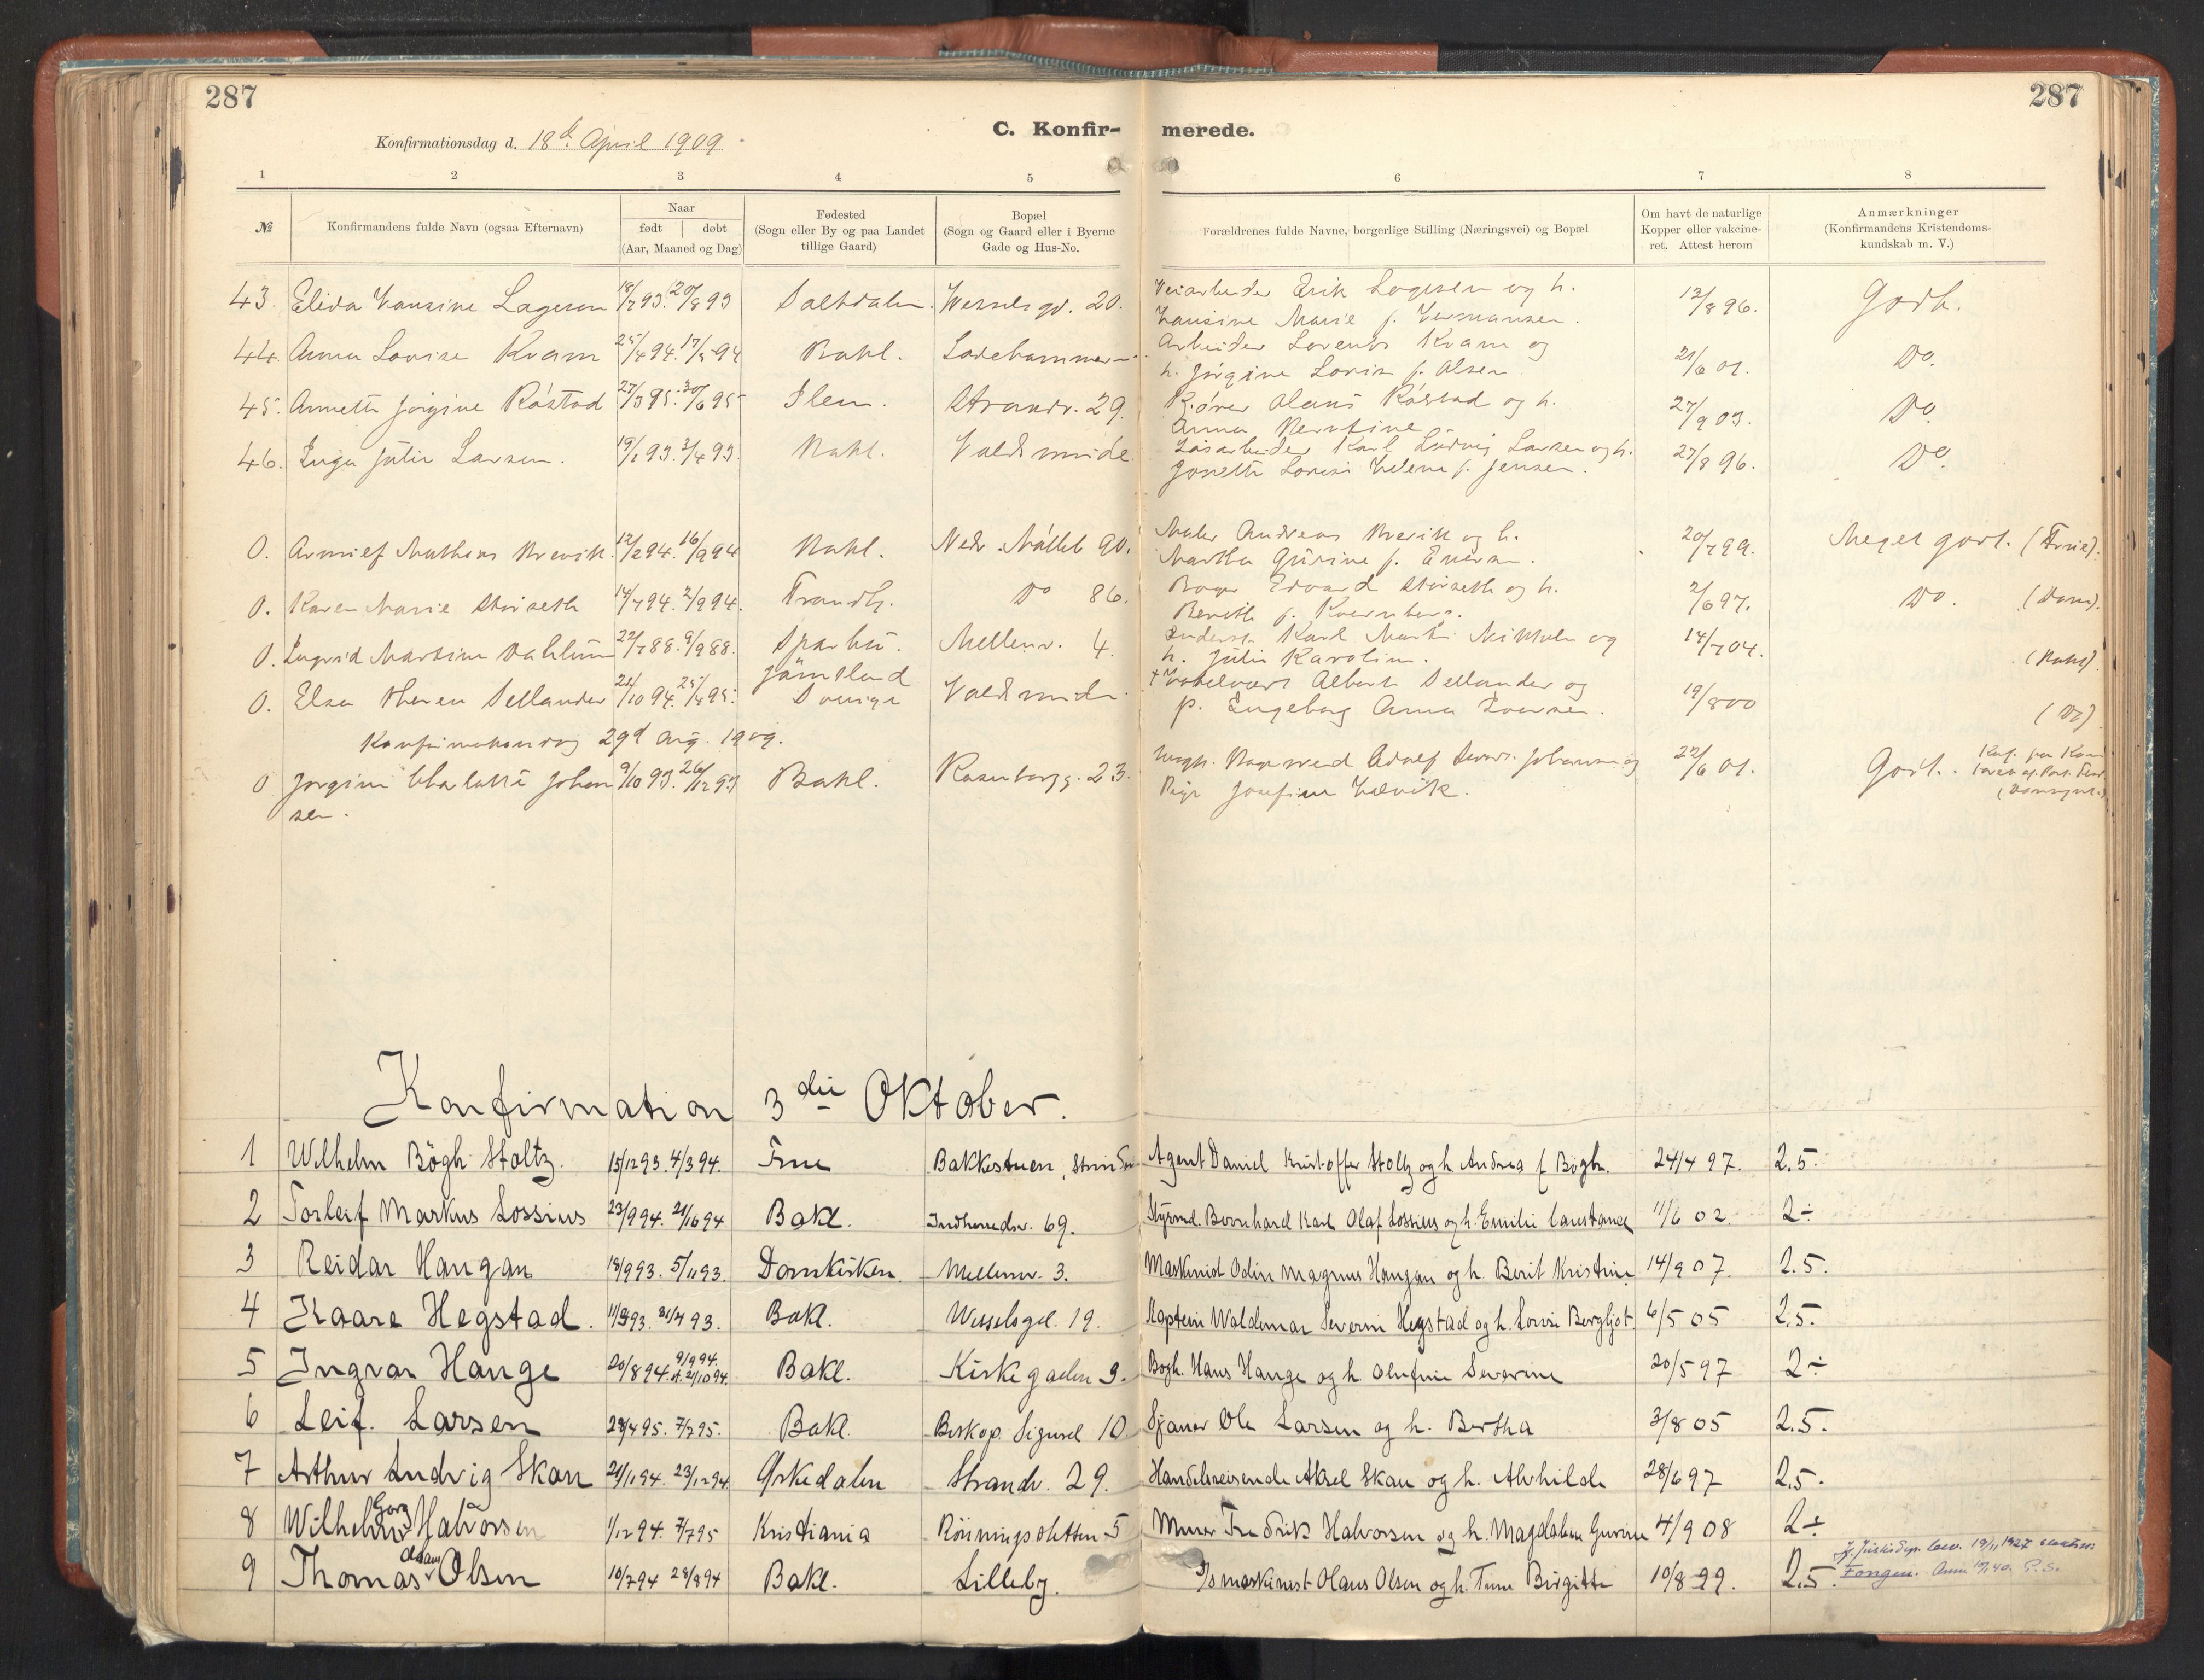 287
287
C. Konfir- merede.
Konfirmationsdag d. 18de April 1909
1 2 3 4 5 6 7 8
№ Konfirmandens fulde Navn (ogsaa Efternavn) Naar født døbt (Aar, Maaned og Dag) Fødested (Sogn eller By og paa Landet tillige Gaard) Bopæl (Sogn og Gaard eller i Byerne Gade og Hus-No. Forældrenes fulde Navne, borgerlige Stilling (Næringsvei) og Bopæl Om havt de naturlige Kopper eller vakcineret. Attest herom Anmærkninger (Konfirmandens Kristendomskundskab m. V.)
43. Elida Hansine Lagesen 18/7 93. 20/8 93 Saltdalen. Wesselsgd. 20. Veiarbeider Erik Lagesen og h. 12/8 96. Godt.
Hansine Marie f. Hermansen.
44. Anna Lovise Kvam 25/4 94. 17/5 94 Bakl. Ladehammeren Arbeider Lorents Kvam og 21/6 01. Do.
h. Jørgine Lovise f. Olsen.
45. Annette Jørgine Råstad 27/3 95. 30/6 95 Ilen. Strandv. 29. Kjører Olaus Råstad og h. 27/9 03. Do.
Anna Berntine
46. Inga Julie Larsen. 19/1 93. 3/4 93. Bakl. Voldsminde Løsarbeider Karl Ludvig Larsen og h. 27/8 96. Do.
Josette Lovise Helene f. Jensen.
0. Mathias Brevik. 12/2 94. 16/9 94 Bakl. Nedr. Mølleb 90. Maler Andreas Brevik og h. 20/7 99. Meget godt. (Frue).
Martha Gurine f. Eversen.
0. Karen Marie Storseth 14/7 94. 2/9 94. Trondh. Do 86. Edvard Storseth og h. 2/6 97. Do. (Dom).
Berith f. Kvernberg.
0. Ingrid Martine Dahlum 22/7 88. 9/9 88. Sparbu. Mellemv. 4. Karl Martin og 14/7 04. (Bakl).
h. Julie Karoline.
0. Elsa Theresa Sellander 21/10 94. 25/4 95. Jämtland Sverige Voldsminde Albert Sellander og 19/8 00 (Do)
f. Ingeborg Anna Iversen.
Konfirmationsdag 29d Aug. 1909.
0 Jørgine Charlotte Johansen. 9/10 93 26/12 93 Bakl. Rosenborgg. 23. Ungk. Adolf Johansen og 22/6 01. Godt.
Pige Josefine Hævik.
Konfirmation 3die Oktober.
1 Wilhelm Bögh Stoltz. 15/12 93. 4/3 94. Frue Bakkestuen, Strinden Agent Daniel Kristoffer Stoltz og h. Andrea f Bögh. 24/4 97. 2.5.
2 Torleif Markus Lossius 23/9 94. 21/10 94 Bakl. Indherredsv. 69. Styrmd. Bernhard Karl Olaf Lossius og h. Emilie Constance 11/6 02. 2÷
3 Reidar Haugan 18/9 93. 5/11 93. Domkirken. Mellemv. 3. Maskinist Odin Magnus Haugan og h. Berit Kristine 14/9 07. 2.5.
4 Kaare Hegstad. 11/3 93. 31/4 93. Bakl. Wesselsgd. 19. Kaptein Waldemar Severin Hegstad og h. Lovise Bergljot. 6/5 05 2.5.
5 Ingvar Hauge 20/8 94. 9/9 94. st. 21/10 94. Bakl. Kirkegaden 9. Bogh. Hans Hauge og h Olufine Severine 20/5 97 2÷
6 Leif. Larsen 28/4 95. 7/7 95. Bakl. Biskop Sigurd 10 Sjauer Ole Larsen og h. Bertha 3/8 05 2.5.
7 Arthur Ludvig Skau 21/11 94. 23/12 94 Ørkedalen Strandv. 29. Handelsreisende Aksel Skau og h. Alvhilde 28/6 97 2.5.
8 Wilhelm Georg Halvorsen 1/12 94. 7/7 95 Kristiania Rönningsletten 5 Murer Fredrik Halvorsen og h. Magdalene Gurine 4/9 08 2÷
9 Thomas Adam Olsen 10/7 94 28/8 94 Bakl. Lilleby. D/s maskinist Olaus Olsen og h. Trine Birgitte 10/8 99. 2.5.
Jf. Justisdep. bev. 19/11 1927 slektsn. Fongen.